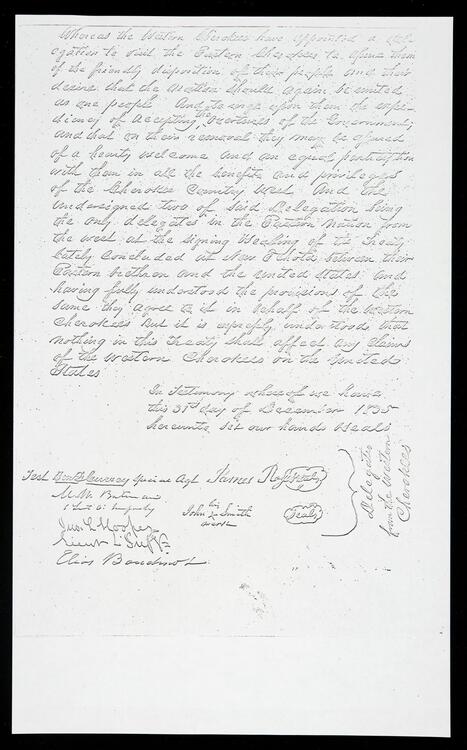 Whereas the Western Cherokees have appointed a del-
egation to visit the Eastern Cherokees to assure them
of the friendly disposition of their people and their
desire that the nation should again be united
as one people and to urge upon them the expe-
diency of accepting the overtures of the Government;
and that on their removal they may be assured
of a hearty welcome and an equal participation
with them in all the benefits and privileges
of the Cherokee Country West and the
undersigned two of said Delegation being
the only delegates in the Eastern Nation from
the west at the signing & sealing of the treaty
lately concluded at New Echota between their
Eastern brethren and the United States and
having fully understood the provisions of the
same they agree to it in behalf of the Western
Cherokees But it is expressly understood that
nothing in this treaty shall affect any claims
of the Western Cherokees on the United
States
In testimony whereof we have
this 31st day of December 1835
hereunto set our hands & seals
Test Benj F Currey Special Agt James Rogers seal
M. W. Bateman
1st Lieut 6 Infantry
John his Smith seal
mark
Jno. L Hooper
Lieut 4 Inf
Elias Boudinot
Delegates
from the Western
Cherokees